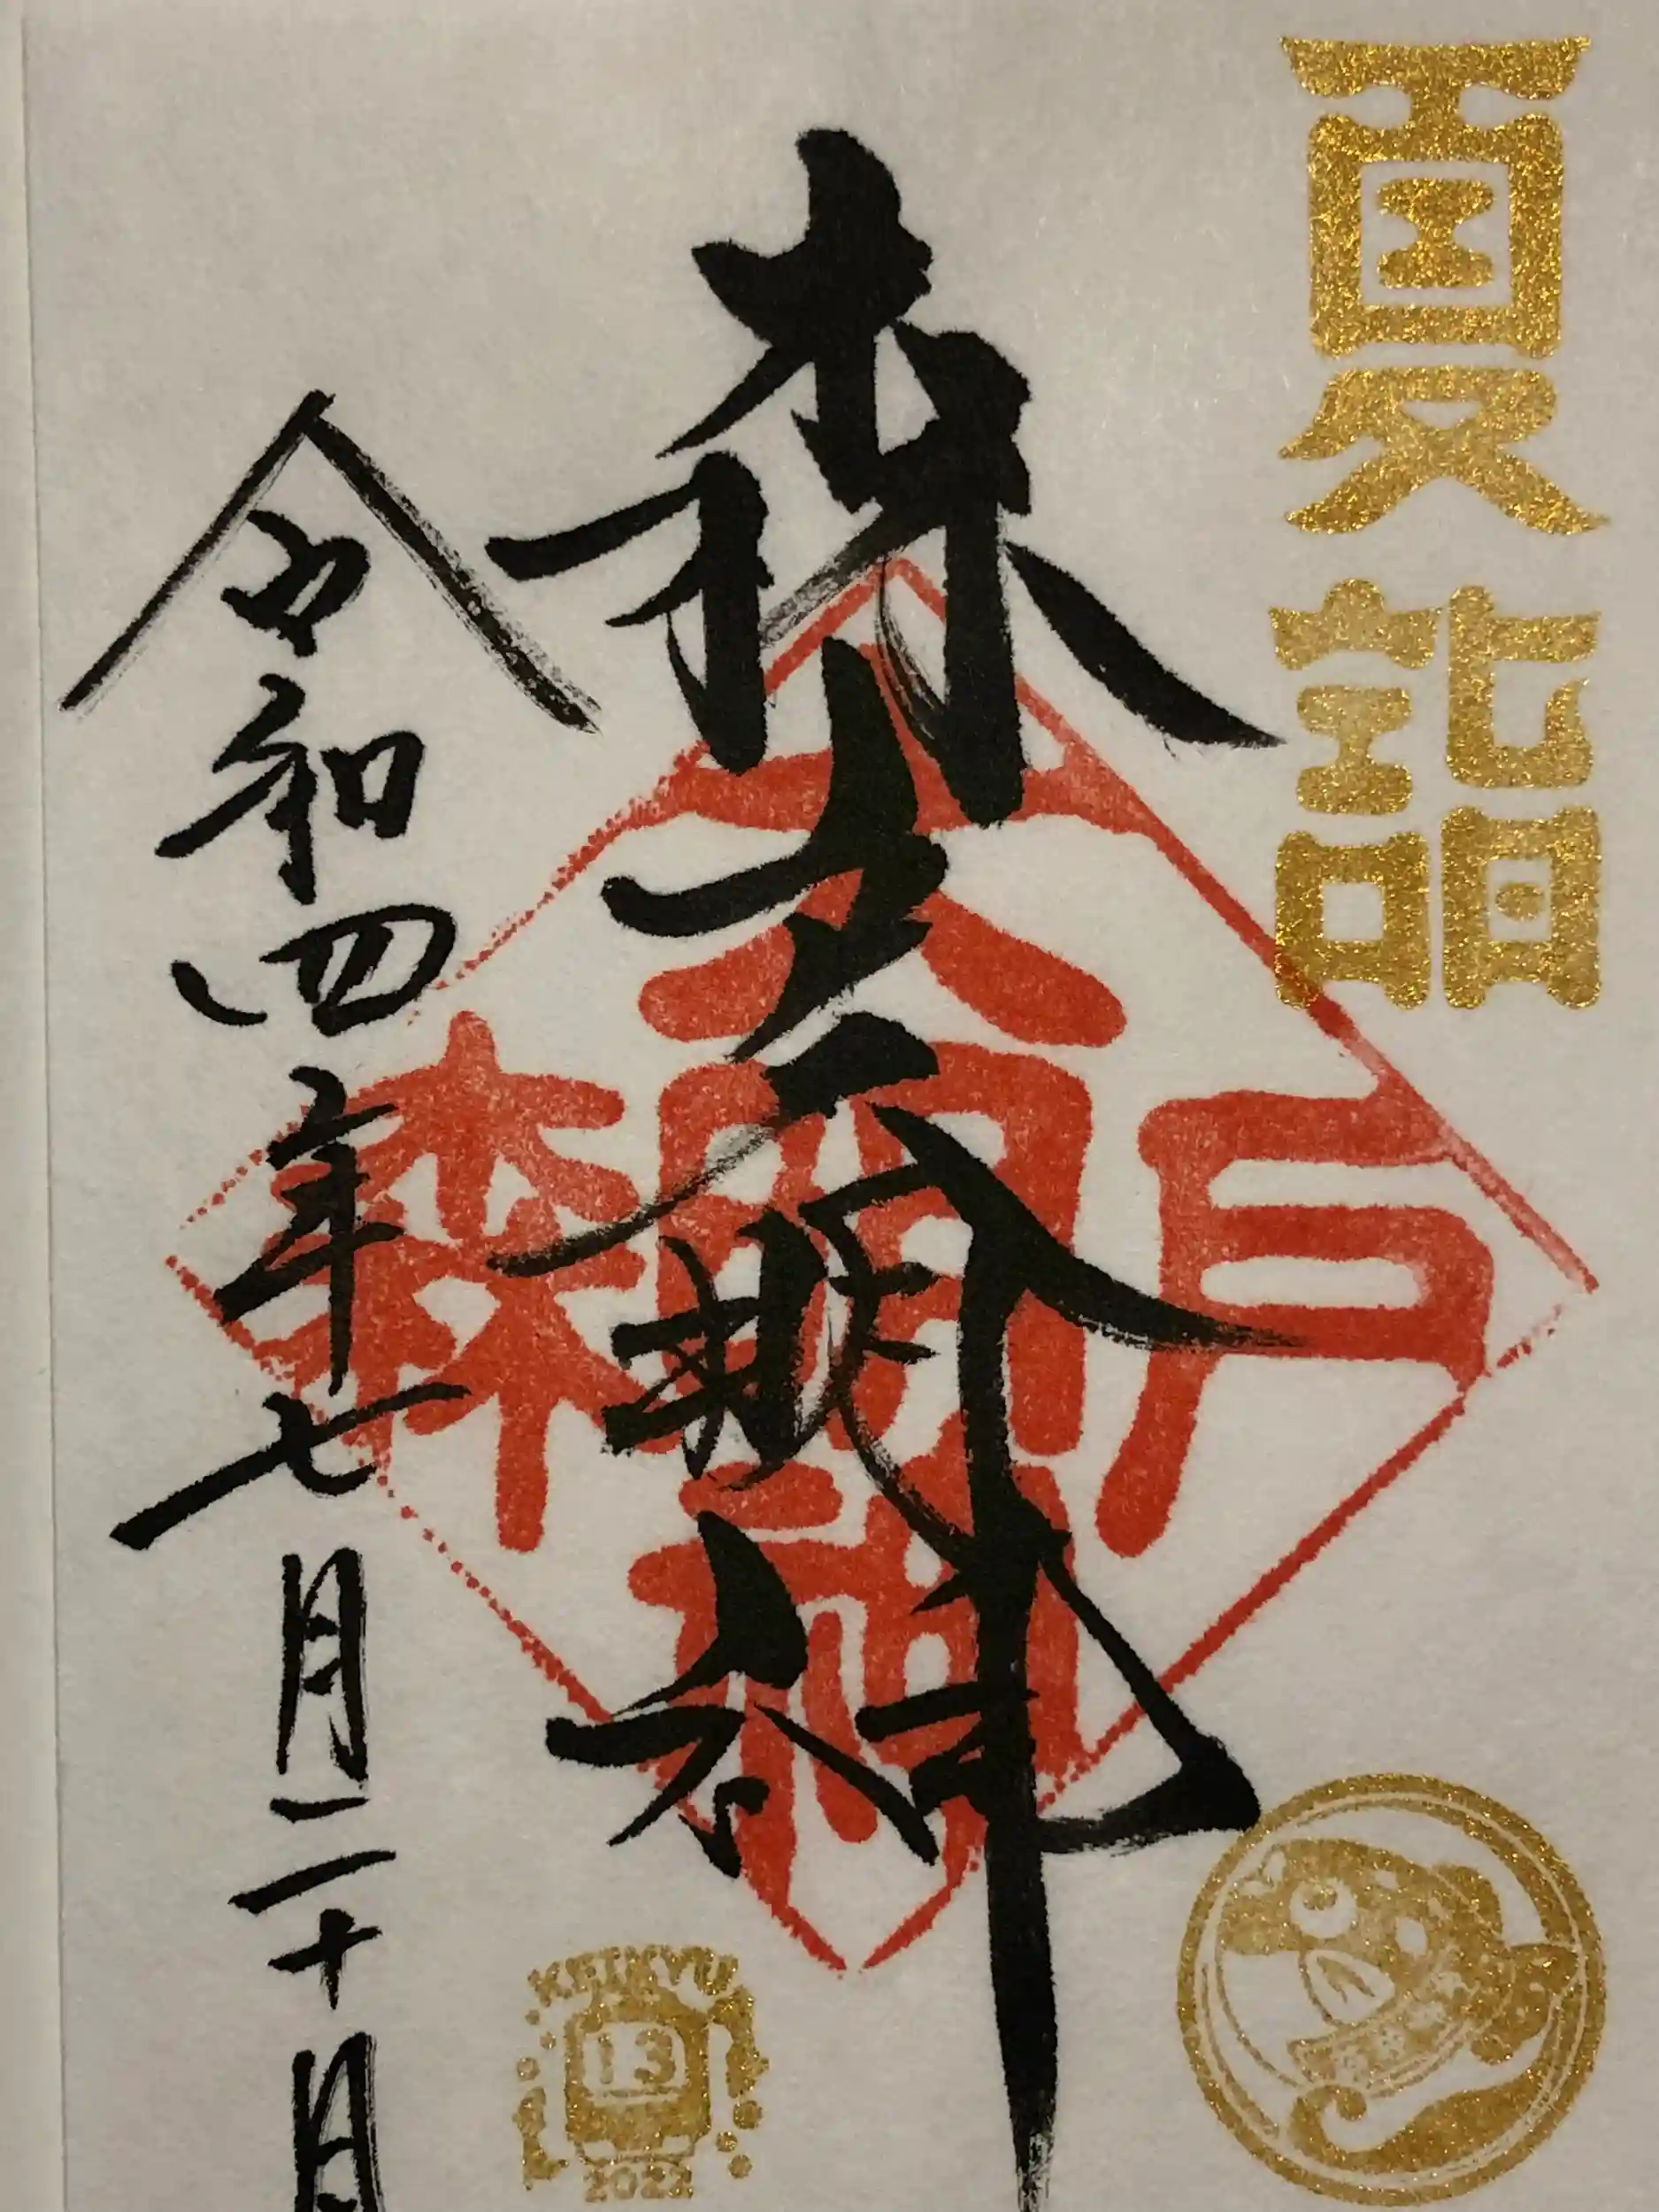 夏詣
森大明神
戸
大明神
森
令和四年七月二十日
KEIKYU
13
2022